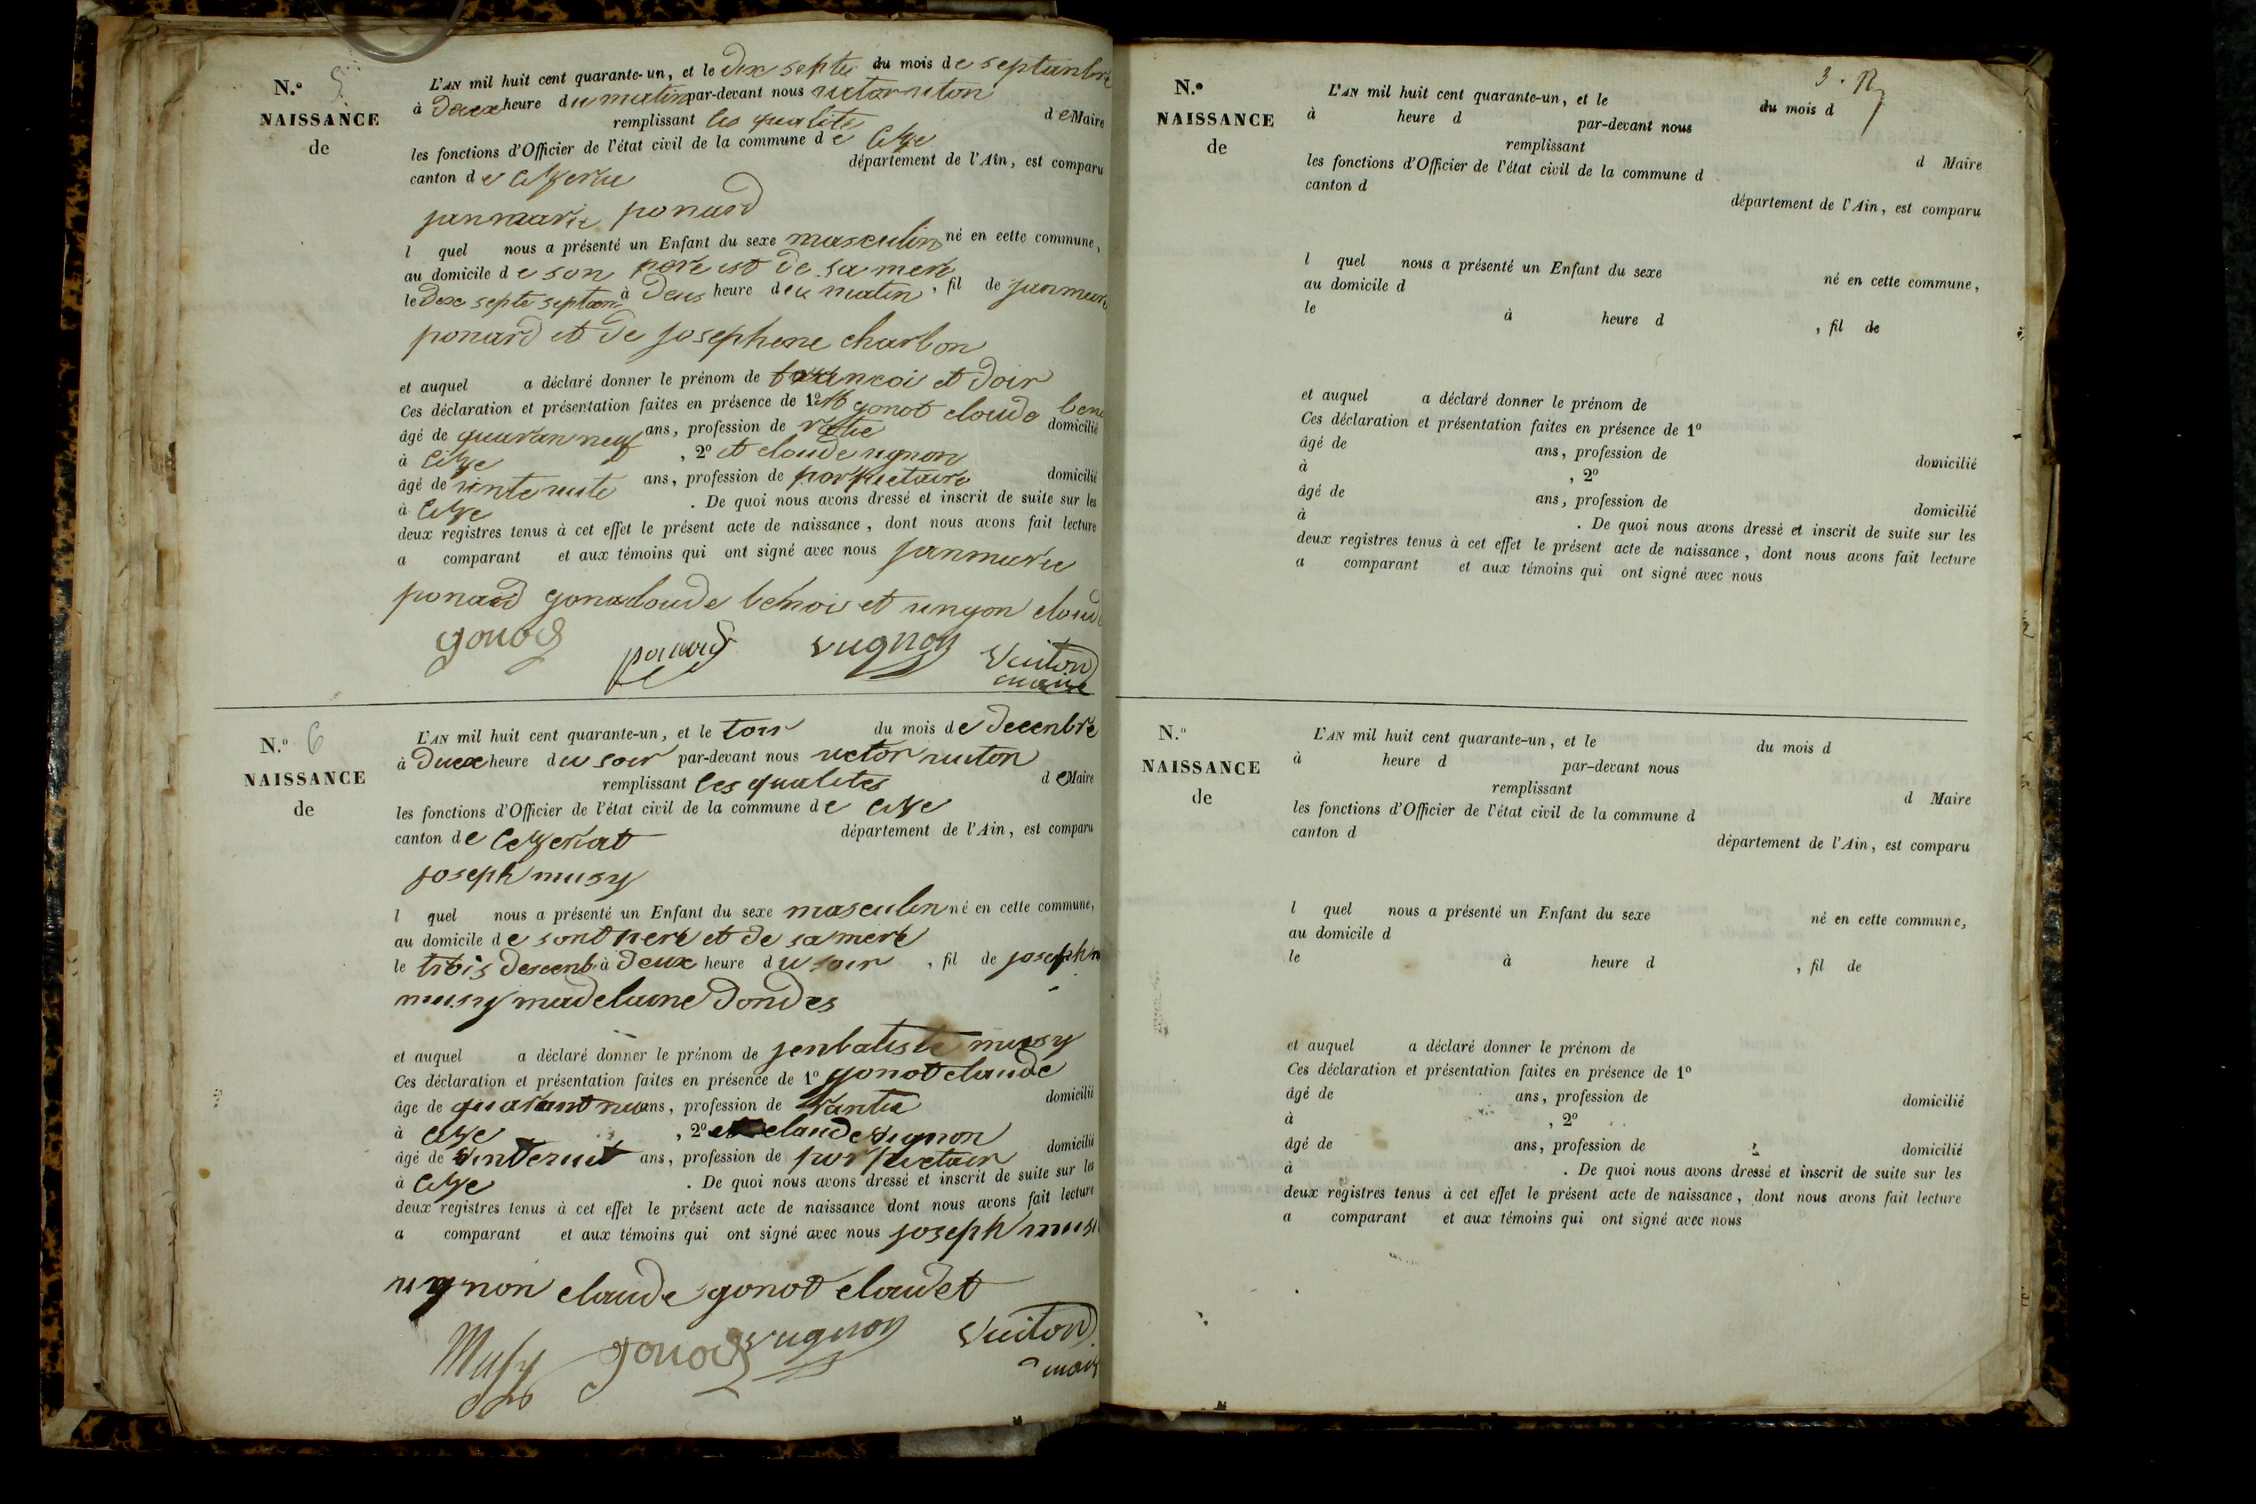 N.o 5
NAISSANCE
de
L'AN mil huit cent quarante-un, et le dix septe du mois de septanbre
à deux heure du matin par-devant nous victor uiton
remplissant les qualite de Maire
les fonctions d'Officier de l'état civil de la commune de Cize
canton de département de l'Ain, est comparu
janmarie ponard
l quel nous a présenté un Enfant du sexe masculin né en cette commune,
au domicile de son pere est de sa mere
le dix septe septanb à deus heure deu matin, fil de janmarie
ponard et de josephene charbon
et auquel a déclaré donner le prénom de francoi et doir
Ces déclaration et présentation faites en présence de 1o gonot cloude beno
âgé de quaran neuf ans, profession de domicilié
à Cize , 2o et cloude ugnon
âgé de vinte uite ans, profession de porpiietaire domicilié
à Cize . De quoi nous avons dressé et inscrit de suite sur les
deux registres tenus à cet effet le présent acte de naissance, dont nous avons fait lecture
a comparant et aux témoins qui ont signé avec nous janmarie
ponard gonocloude benoi et ungon cloud
gonod ponard vugnon Vuiton
maire
N.o 6
NAISSANCE
de
L'AN mil huit cent quarante-un, et le tois du mois de decenbre
à duex heure du soir par-devant nous victor uuiton
remplissant les qualites de Maire
les fonctions d'Officier de l'état civil de la commune de Cize
canton de Ceyzeriat département de l'Ain, est comparu
joseph musy
l quel nous a présenté un Enfant du sexe masculin né en cette commune,
au domicile de sont pere et de sa mere
le trois descenb à deux heure du soir, fil de joseph m
musy madelaine dondes
et auquel a déclaré donner le prénom de jenbatiste musy
Ces déclaration et présentation faites en présence de 1o gonot claude
âge de quarant neu ans, profession de rantie domicilié
à Cize , 2o et claude vugnon
âgé de vinteruit ans, profession de porpiietair domicilié
à Cize . De quoi nous avons dressé et inscrit de suite sur les
deux registres tenus à cet effet le présent acte de naissance dont nous avons fait lecture
a comparant et aux témoins qui ont signé avec nous joseph musi
ugnon claude gonot claudet
Musy gonod vugnon Vuiton
mair
3.
N.o
NAISSANCE
de
L'AN mil huit cent quarante-un, et le du mois d
à heure d par-devant nous
remplissant d Maire
les fonctions d'Officier de l'état civil de la commune d
canton d département de l'Ain, est comparu
l quel nous a présenté un Enfant du sexe né en cette commune,
au domicile d
le à heure d , fil de
et auquel a déclaré donner le prénom de
Ces déclaration et présentation faites en présence de 1o
âgé de ans, profession de domicilié
à , 2o
âgé de ans, profession de domicilié
à . De quoi nous avons dressé et inscrit de suite sur les
deux registres tenus à cet effet le présent acte de naissance, dont nous avons fait lecture
a comparant et aux témoins qui ont signé avec nous
N.o
NAISSANCE
de
L'AN mil huit cent quarante-un, et le du mois d
à heure d par-devant nous
remplissant d Maire
les fonctions d'Officier de l'état civil de la commune d
canton d département de l'Ain, est comparu
l quel nous a présenté un Enfant du sexe né en cette commune,
au domicile d
le à heure d , fil de
et auquel a déclaré donner le prénom de
Ces déclaration et présentation faites en présence de 1o
âgé de ans, profession de domicilié
à , 2o
âgé de ans, profession de domicilié
à . De quoi nous avons dressé et inscrit de suite sur les
deux registres tenus à cet effet le présent acte de naissance, dont nous avons fait lecture
a comparant et aux témoins qui ont signé avec nous